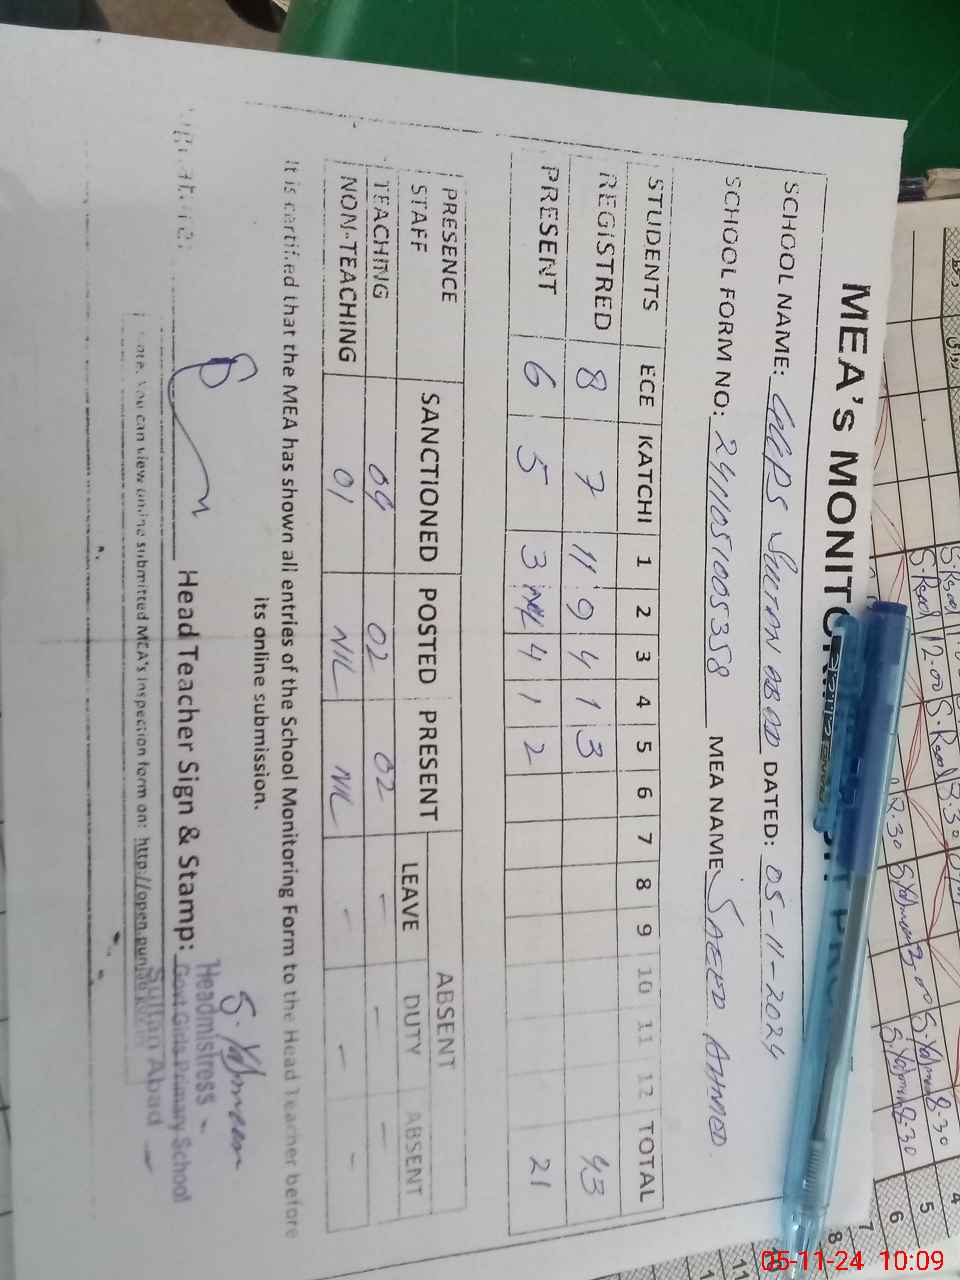 MEA's MONITORING
SCHOOL NAME: GGPS SULTAN ABAD DATED: 05-11-2024
SCHOOL FORM NO: 2411051005358 MEA NAME SAEED AHMED
STUDENTS ECE KATCHI 1 2 3 4 5 6 7 8 9 10 11 12 TOTAL
REGISTRED 8 7 11 9 4 1 3 43
PRESENT 6 5 3 NIL 4 1 2 21
PRESENCE STAFF SANCTIONED POSTED PRESENT ABSENT
LEAVE DUTY ABSENT
TEACHING 04 02 02 - - -
NON-TEACHING 01 NIL NIL - - -
It is certified that the MEA has shown all entries of the School Monitoring Form to the Head Teacher before
its online submission.
Signature: Head Teacher Sign & Stamp: S. Yasmeen
Headmistress
Govt Girls Primary School
Sultan Abad
Note: You can view online submitted MEA's inspection form on: http://open.punjab
05-11-24 10:09